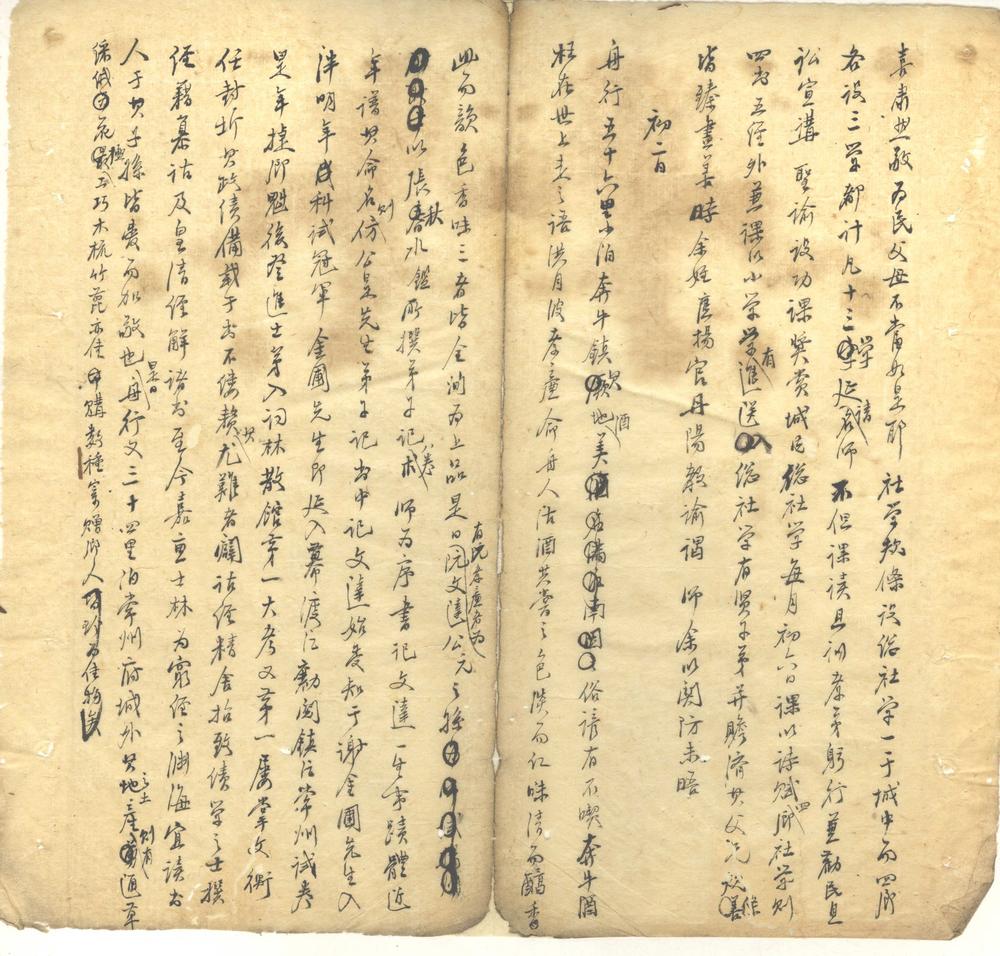 喜肅然敬為民父母不當如是耶 社學規條設總社學一于城中而四鄉
各設三學都計凡十三學延請名師不但課讀且訓孝弟躬行並勸民息
訟宣講 聖諭設功課奬賞城民總社學每月初六日課以詩賦四鄉社學則
四書五經外兼課以小學學有進送入總社學有賢子弟并贍濟其父兄
皆臻盡善時余姪應揚官丹陽教諭謁 師余以關防未晤
初二日
舟行五十六里泊奔牛鎮其地酒美俗諺有不喫奔牛酒
枉在世上走之語洪月波孝廉命舟人沽酒共嘗之色淡而仁味清而醇香
此而韻色香味三者皆全洵為上品是日有阮孝廉者為阮文達公元之孫
以張秋水鑑所撰弟子記八卷求 師為序書記文達一生事蹟體近
年譜其命名則仿公是先生弟子記書中記文達始受知于謝金圃先生入
泮明年歲科試冠軍金圃先生即延入幕渡江勷閱鎮江常州試卷
是年掇鄉魁後登進士第入詞林散館第一大考又第一屢掌文衡
任封圻其政績備載于書不僂贅其尤難者闢詁經精舍招致績學之士撰
經籍纂詁及皇清經解諸書至今嘉惠士林為窮經之淵海宜讀書
人于其子孫皆愛而加敬也是日舟行又三十四里泊常州府城外其地之土產則有通草
絨花極工巧木梳竹篦亦佳購數種寄贈鄉人